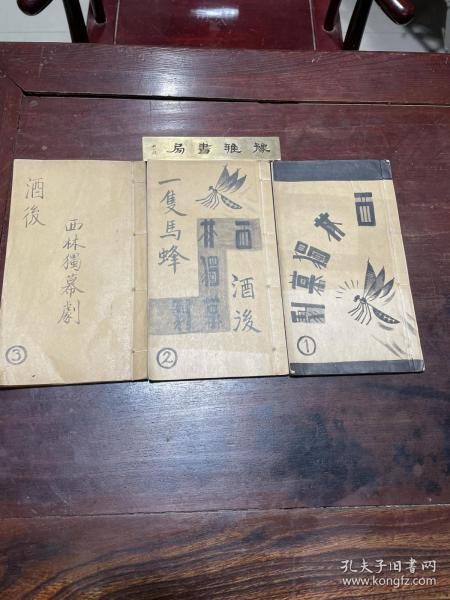 豫雅書局
酒後
西林獨幕劇
③
一隻馬蜂
西林獨幕劇
酒後
②
西林獨幕劇
①
孔夫子旧书网
www.kongfz.com